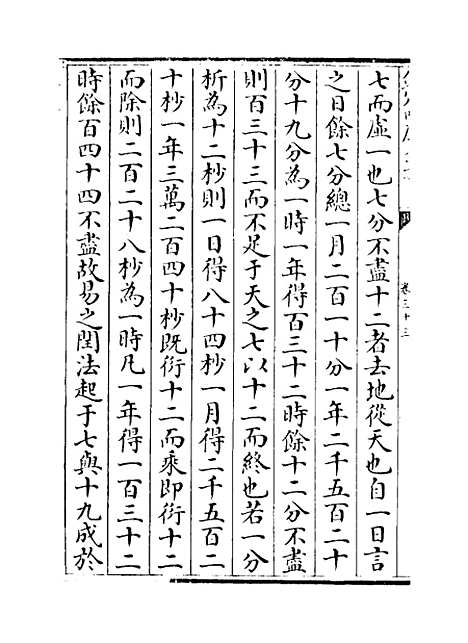 七而虛一也七分不盡十二者去地從天也自一日言
之日餘七分總一月二百一十分一年二千五百二十
分十九分為一時一年得百三十二時餘十二分不盡
則百三十三而不足于天之七以十二而終也若一分
析為十二杪則一日得八十四杪一月得二千五百二
十杪一年三萬二百四十杪既衍十二而乘即衍十二
而除則二百二十八杪為一時凡一年得一百三十二
時餘百四十四不盡故易之閏法起于七與十九成於
卷三十三